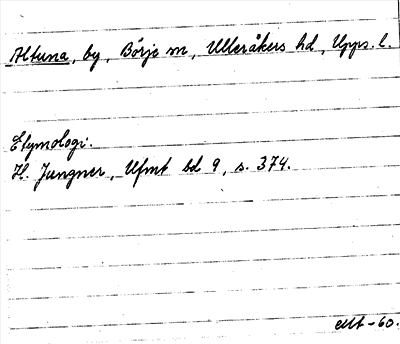 Altuna, by, Börje sn, Ulleråkers hd, Upps. l.
Etymologi.
H. Jungner, Ufmt bd 9, s. 374.
-60.